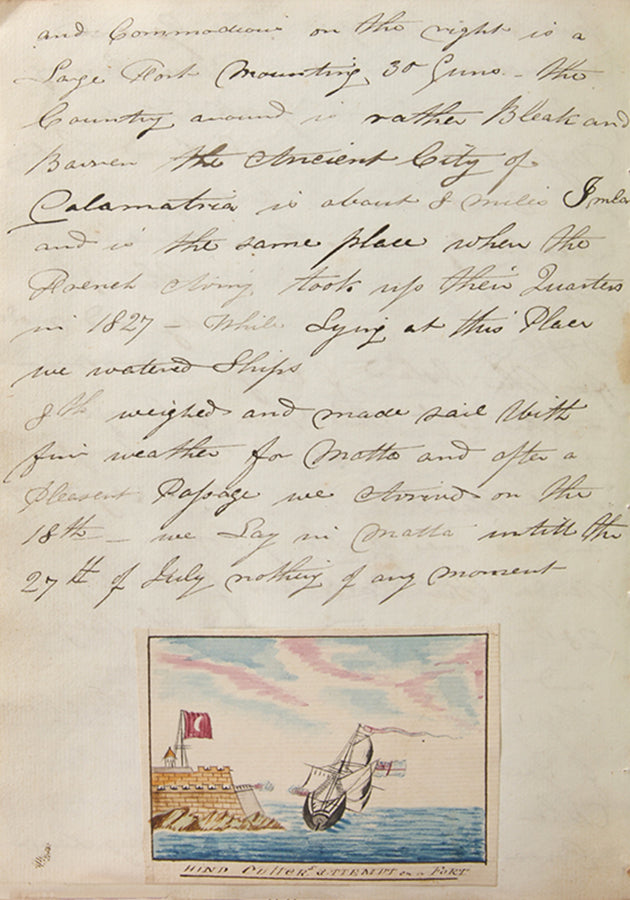 and Commodious on the right is a
Large Fort Mounting 30 Guns – the
Country around is rather Bleak and
Barren the Ancient City of
Calamatria is about 8 miles Inla
and is the same place when the
French Army took up their Quarters
in 1827 – While Lying at this Place
we watered Ships
8th weighed and made sail With
fair weather for Malta and after a
Pleasent Passage we Arived on the
18th – we Lay in Malta untill the
27th of July nothing of any moment
HIND Cutter's ATTEMPT on a FORT